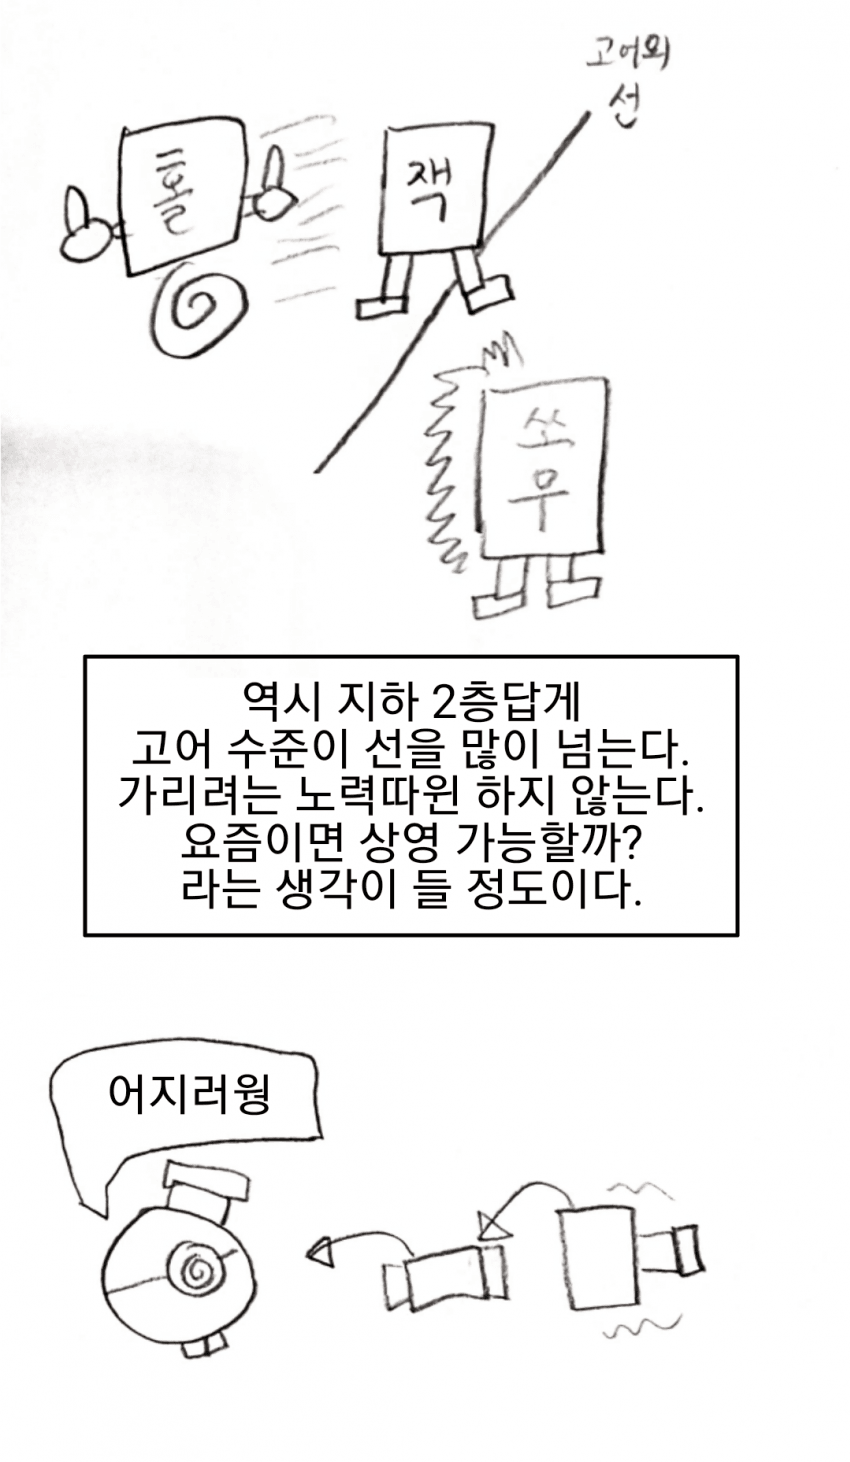 고어의
선
홀
잭
쏘
우
역시 지하 2층답게
고어 수준이 선을 많이 넘는다.
가리려는 노력따윈 하지 않는다.
요즘이면 상영 가능할까?
라는 생각이 들 정도이다.
어지러웡